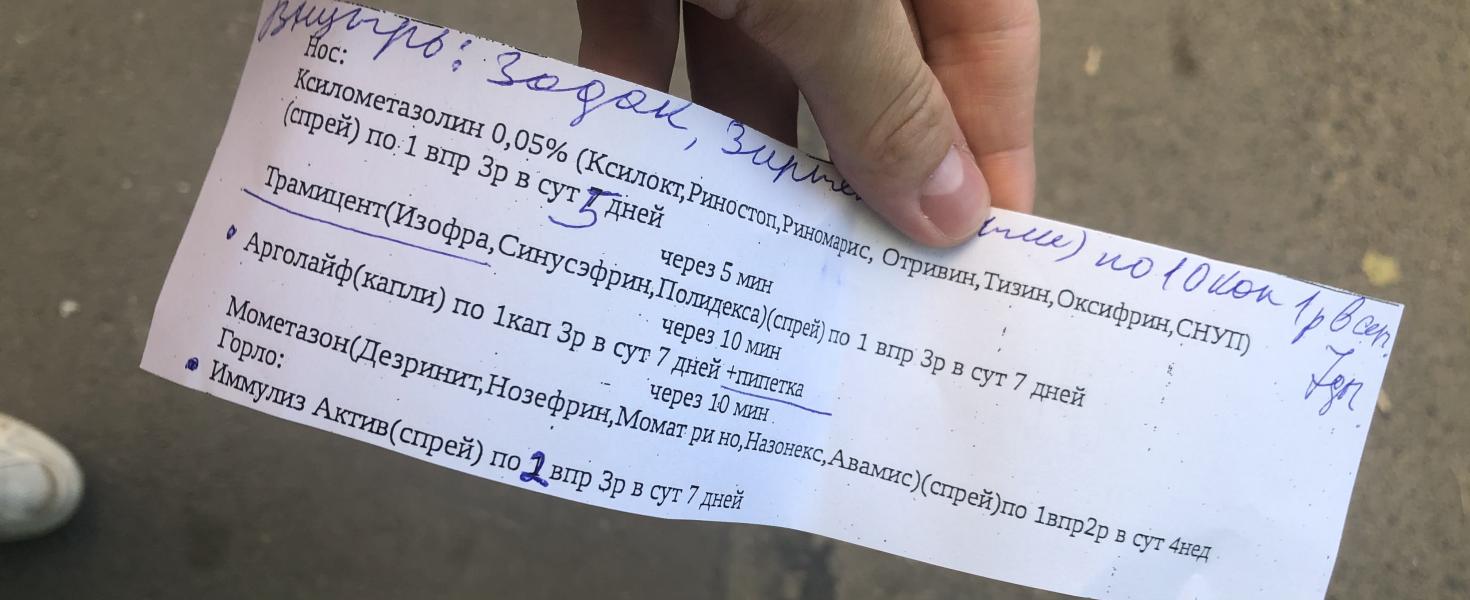 Внутрь: Зодак, Зирте ... по 10 кап 1р в сут.
7 дн.
Нос:
Ксилометазолин 0,05% (Ксилокт,Риностоп,Риномарис, Отривин,Тизин,Оксифрин,СНУП)
(спрей) по 1 впр 3р в сут 5 дней
через 5 мин
Трамицент(Изофра,Синусэфрин,Полидекса)(спрей) по 1 впр 3р в сут 7 дней
через 10 мин
Арголайф(капли) по 1кап 3р в сут 7 дней +пипетка
через 10 мин
Мометазон(Дезринит,Нозефрин,Момат ри но,Назонекс,Авамис)(спрей)по 1впр2р в сут 4нед
Горло:
Иммулиз Актив(спрей) по 2 впр 3р в сут 7 дней